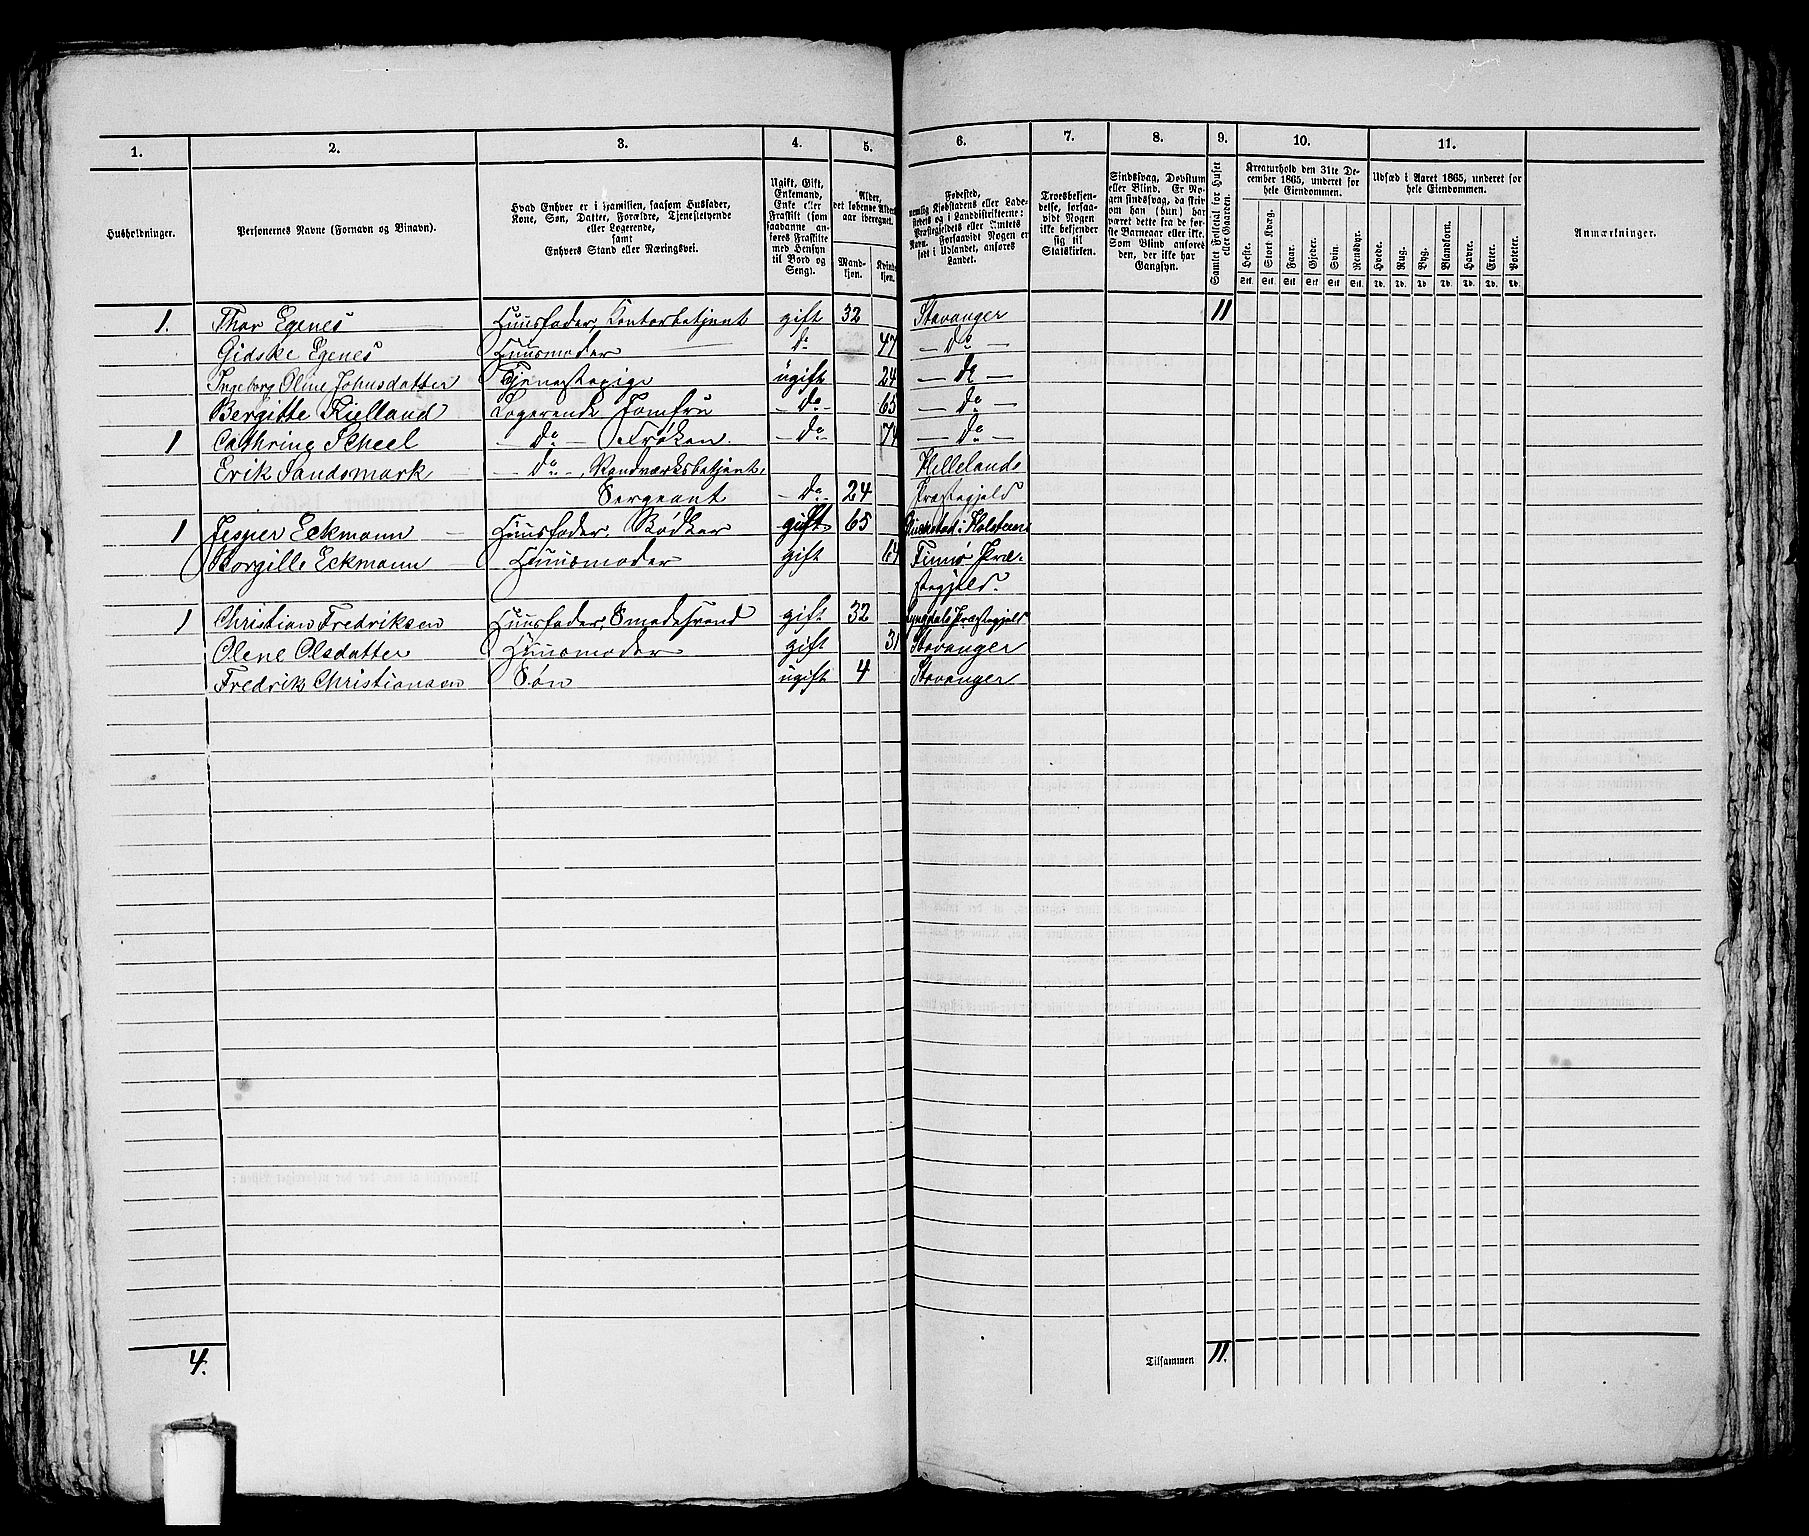 1. 2. 3. 4. 5. 6. 7. 8. 9. 10. 11.
Husholdninger.
Personernes Navne (Fornavn og Binavn).
Hvad Enhver er i Familien, saasom Husfader,
Kone, Søn, Datter, Forældre, Tjenestetyende
eller Logerende,
samt
Enhvers Stand eller Næringsvei.
Ugift, Gift,
Enkemand,
Enke eller
Fraskilt (som
saadanne anføres Fraskilte
med Hensyn
til Bord og
Seng).
Alder,
det løbende Alders-
aar iberegnet.
Mand-
kjøn.
Kvinde-
kjøn.
Fødested,
nemlig Kjøbstadens eller Lade-
stedets og i Landdistrikterne:
Præstegjeldets eller Amtets
Navn. Forsaavidt Nogen er
født i Udlandet, anføres
Landet.
Troesbekjen-
delse, forsaa-
vidt Nogen
ikke bekjender
sig til
Statskirken.
Sindssvag, Døvstum
eller Blind. Er No-
gen sindssvag, da skriv
om han (hun) har
været dette fra de før-
ste Barneaar eller ikke.
Som Blind anføres
den, der ikke har
Gangsyn.
Samlet Folketal for Huset
eller Gaarden.
Kreaturhold den 31te De-
cember 1865, underet for
hele Eiendommen.
Heste. Stort Kvæg. Faar. Gjeder. Svin. Rensdyr.
Stk. Stk. Stk. Stk. Stk. Stk.
Udsæd i Aaret 1865, underet for
hele Eiendommen.
Hvede. Rug. Byg. Blandkorn. Havre. Erter. Poteter.
Td. Td. Td. Td. Td. Td. Td.
Anmærkninger.
1. Thor Egenes Huusfader, Contorbetjent gift 32 Stavanger 11
Gidske Egenes Huusmoder do 47 — do —
Ingeborg Oline Johnsdatter Tjenestepige ugift 24 — do —
Bergitte Kielland Logerende Jomfru — do — 65 — do —
1 Cathrine Scheel — do — Frøken. — do — 74 — do —
Erik Sandsmark — do —, Haandværksbetjent, Hellelands
Sergeant — do — 24 Præstegjeld
1 Jesper Eckmann Huusfader, Bødker gift 65 Glückstad i Holsteen
Borgille Eckmann Huusmoder gift 64 Finnø Præ-
stegjeld.
1 Christian Fredriksen Huusfader, Smedesvend gift 32 Lyngdals Præstegjeld
Olene Olsdatter Huusmoder gift 31 Stavanger
Fredrik Christiansen Søn ugift 4 Stavanger
4. Tilsammen 11.